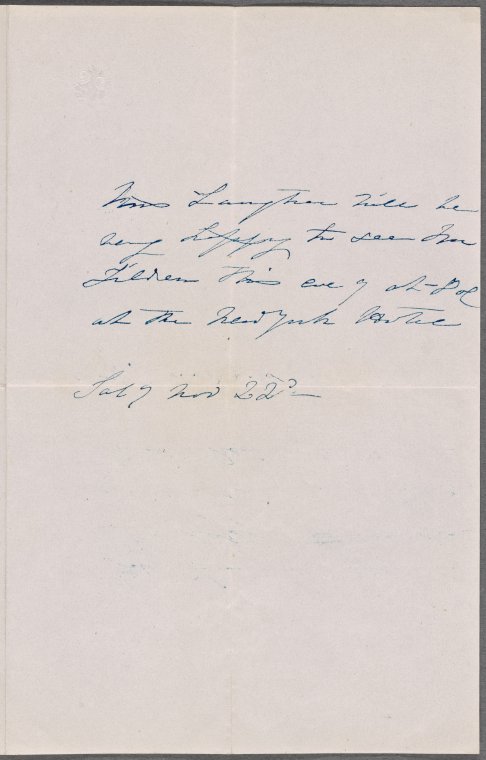 will be
very happy to see Mr
Tilden this eve'g at
at the New York Hotel
Sat'y Nov 22d